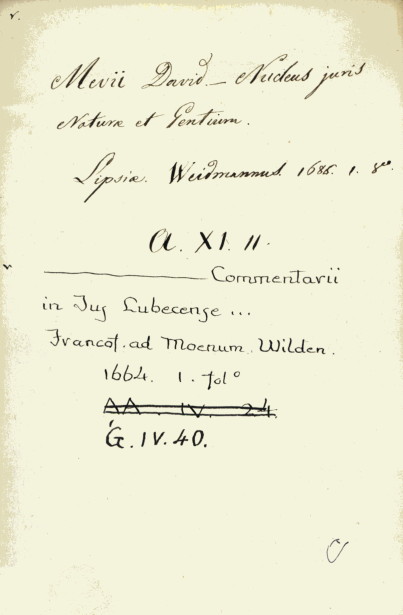 v.
Mevii David. — Nucleus juris
Naturæ et Gentium.
Lipsiæ. Weidmannus. 1686. 1. 8°.
A. XI. 11.
———— Commentarii
in Jus Lubecense ...
Francof. ad Moenum. Wilden.
1664. 1. fol°
AA. IV. 24
G. IV. 40.